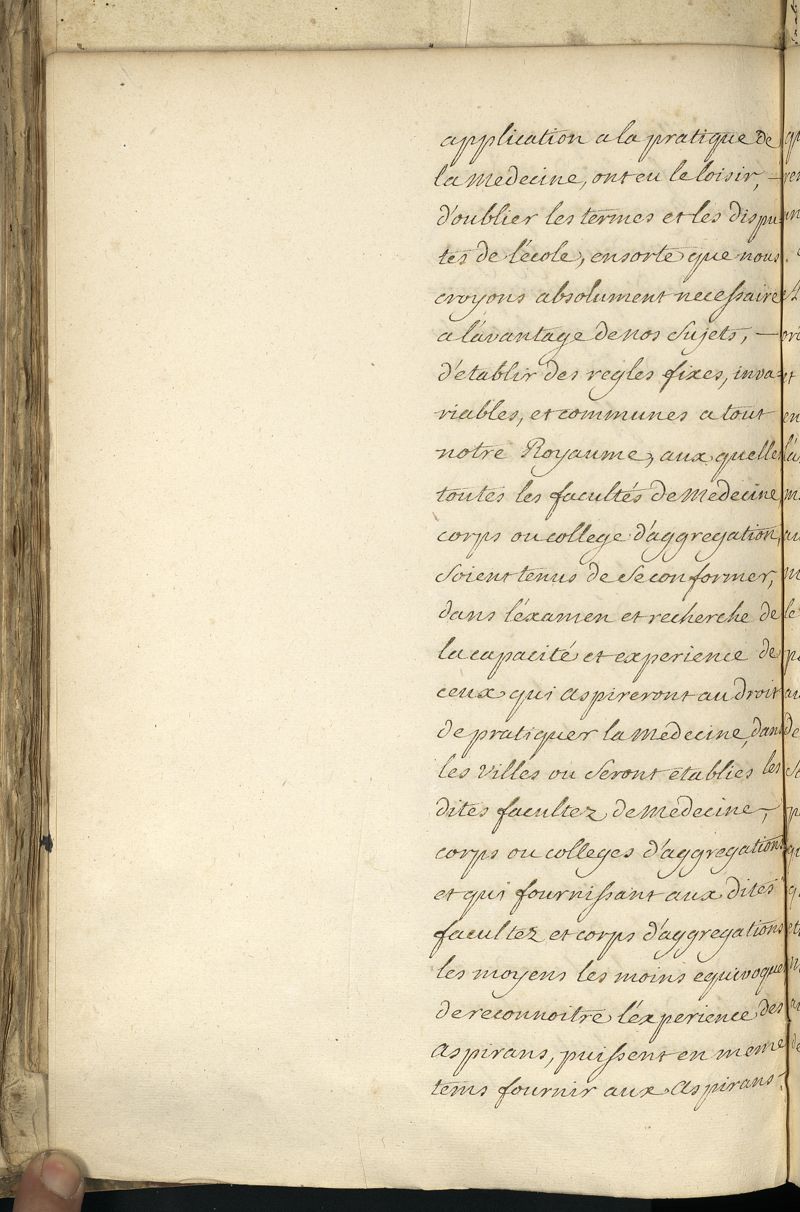 application a la pratique de
la medecine, ont eu le loisir, —
d'oublier les termes et les dispu-
tes de l'école, ensorte que nous
croyons absolument necessaire
a l'avantage de nos Sujets, —
d'etablir des regles fixes, inva-
riables, et communes a tout
notre Royaume, aux quelles
toutes les facultés de Medecine
corps ou college d'aggregation,
soient tenus de se conformer,
dans l'éxamen et recherche de
la capacité et experience de
ceux qui aspireront au droit
de pratiquer la medecine, dans
les Villes ou Seront etablies les
dites facultez de Medecine,
corps ou colleges d'aggregations
et qui fournissant aux dites
facultez et corps d'aggregations
les moyens les moins equivoques
de reconnoitre l'éxperience des
Aspirans, puissent en meme
tems fournir aux Aspirans